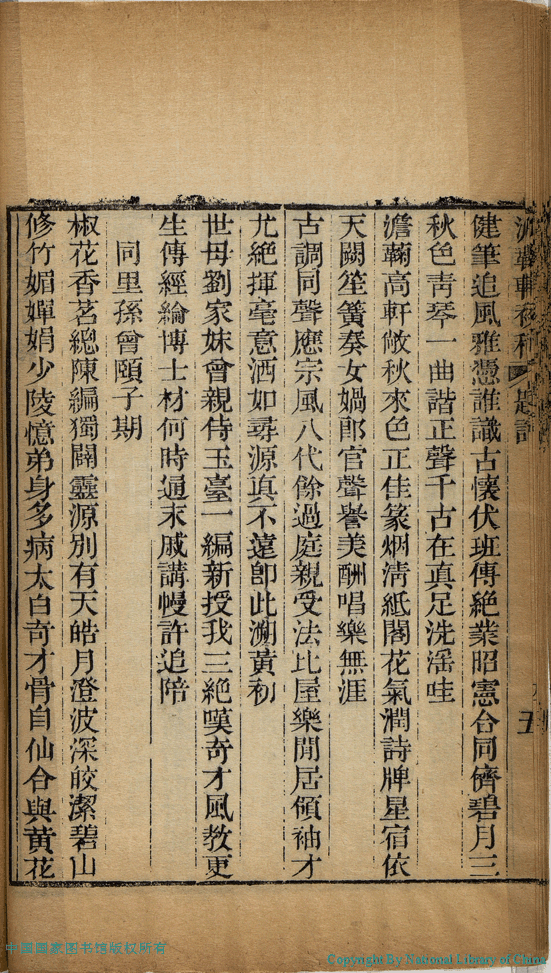 健筆追風雅憑誰識古懷伏班傳絶業昭憲合同儕碧月三
秋色靑琴一曲諧正聲千古在真足洗滛哇
澹蘜高軒敞秋來色正佳篆烟清紙閣花氣潤詩牌星宿依
天闕笙簧奏女媧郎官聲譽美酬唱樂無涯
古調同聲應宗風八代餘過庭親受法比屋樂閒居領袖才
尤絶揮毫意洒如尋源真不遠卽此溯黃初
世母劉家妹曾親侍玉臺一編新授我三絶嘆奇才風教更
生傳經綸博士材何時通末戚講幔許追陪
同里孫曾頤子期
椒花香茗總陳編獨闢靈源別有天皓月澄波深皎潔碧山
修竹媚嬋娟少陵憶弟身多病太白奇才骨自仙合與黃花
五
中國國家图书馆版权所有
Copyright By National Library of China